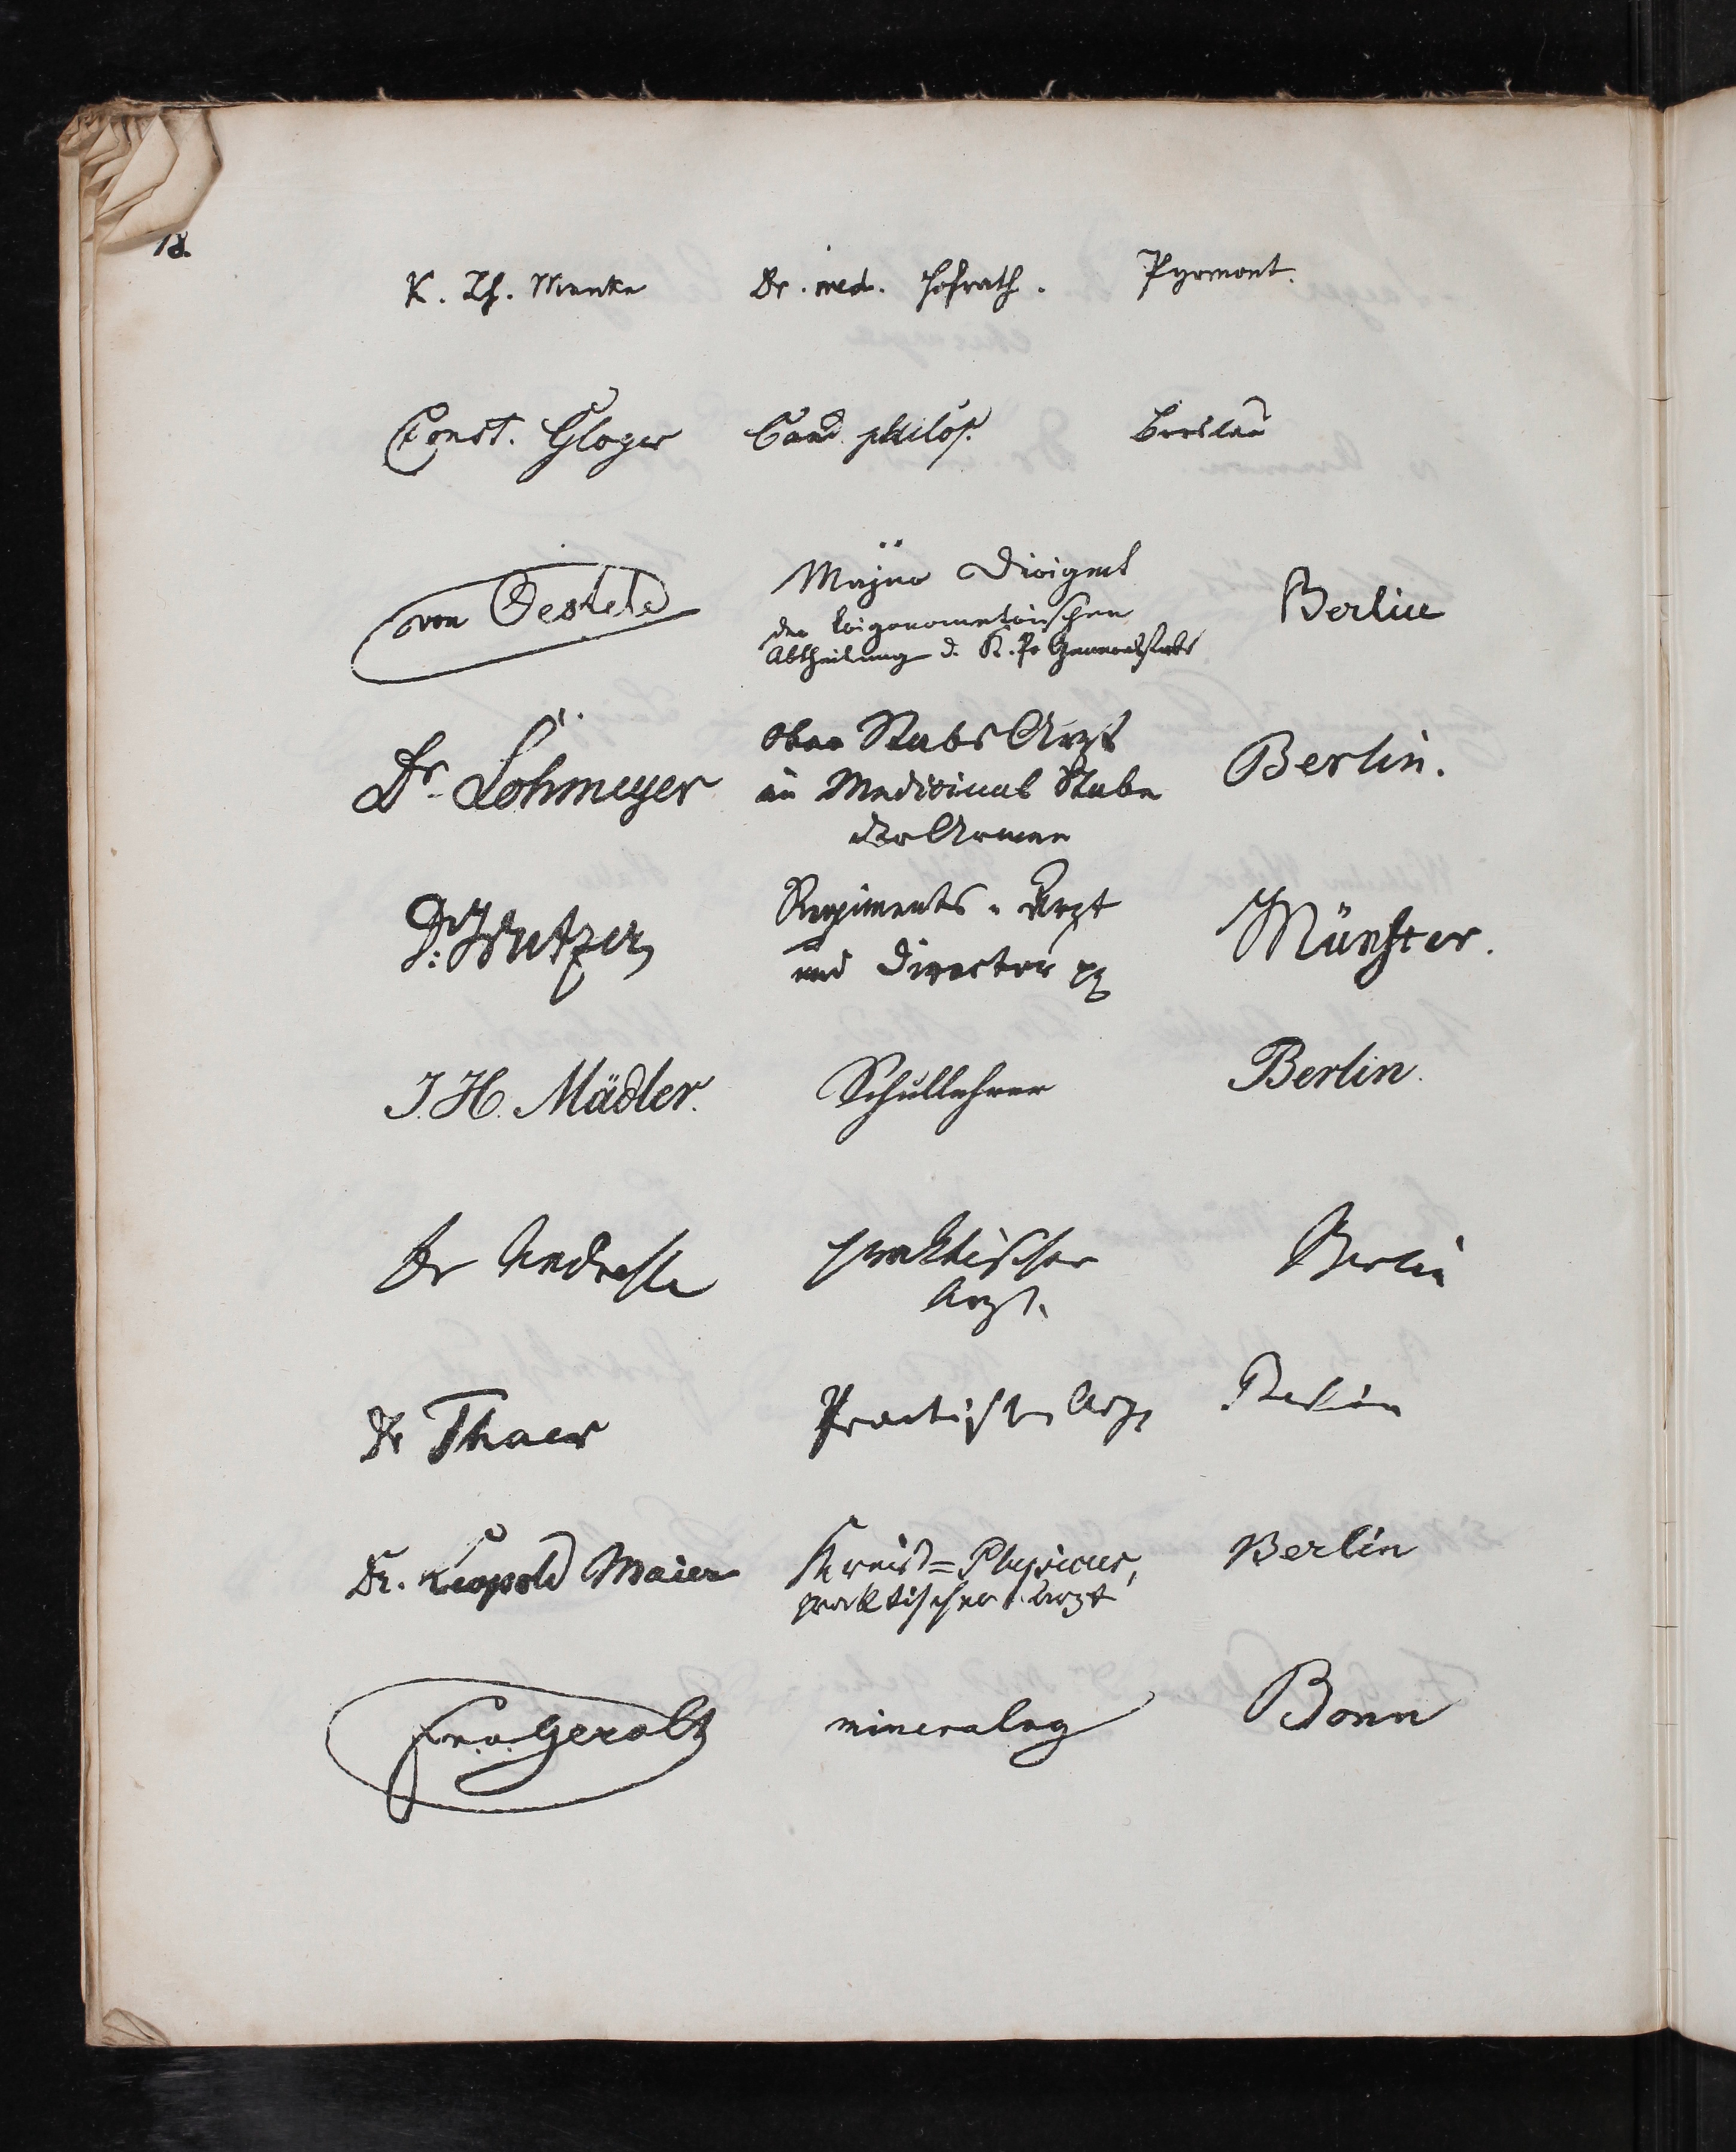 18.
K. Th. Menke Dr. med. Hofrath. Pyrmont.
Const. Gloger Cand. philos. Breslau
von Oesfeld Major Dirigent Berlin
der trigonometrischen
Abtheilung d. K. Pr Generalstabs
Dr. Lohmeyer Ober Stabs Arzt Berlin.
im Medicinal Stabe
der Armee
Dr. Wutzer Regiments-Arzt Münster.
und Director pp
J. H. Mädler. Schullehrer Berlin.
Dr Andresse praktischer Berlin
Arzt.
Dr Thaer Practischer Arzt Berlin
Dr. Leopold Maier Kreis=Physicus, Berlin
praktischer Arzt
Fr. v. Gerolt mineralog Bonn